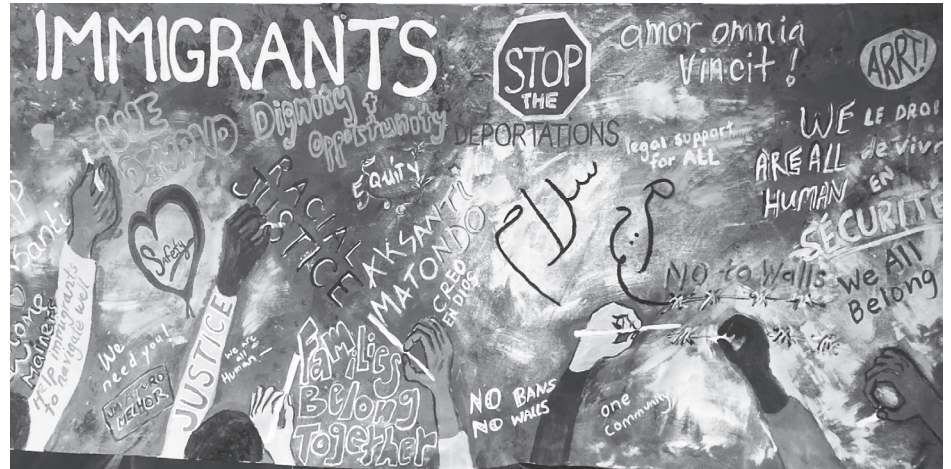 IMMIGRANTS
STOP
THE
DEPORTATIONS
amor omnia
vincit!
ARRT!
WE
DEMAND
Dignity +
Opportunity
EQuity
legal support
for ALL
WE
ARE ALL
HUMAN
LE DROI
de vivr
EN
SÉCURITÉ
RACIAL
JUSTICE
Safety
AKSANTI
MATONDO
CREO
EN
DIOS
سلام
NO to Walls
We All
Belong
santi
HELP immigrants
to navigate well
We
need you!
UM FUTURO
MELHOR
JUSTICE
we are
all
Human
Families
Belong
Together
NO BANS
NO WALLS
one
community